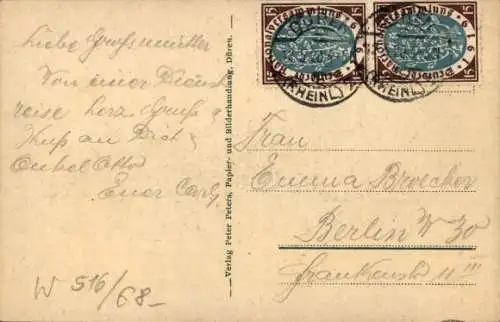 Liebe Großmutter
Von einer Dienst
reise herz. Gruß &
Kuß an Dich &
Onkel Otto
Euer Carl
W 516/68-
Verlag Peter Peters, Papier- und Bilderhandlung, Düren.
Deutsche Nationalversammlung 1919
15 15
Deutsche Nationalversammlung 1919
15 15
(RHEINL)
Frau
Emma Broecker
Berlin W 30
Frankenstr 11 III